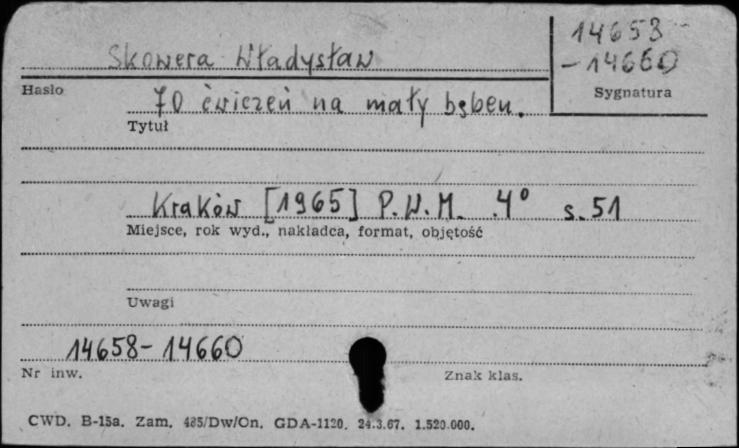 14658
Skowera Władysław
- 14660
Hasło
Sygnatura
70 ćwiczeń na mały bęben.
Tytuł
Kraków [1965] P.W.M. 4° s. 51
Miejsce, rok wyd., nakładca, format, objętość
Uwagi
14658 - 14660
Nr inw.
Znak klas.
CWD. B-15a. Zam. 485/Dw/On. GDA-1120. 24.3.67. 1.520.000.